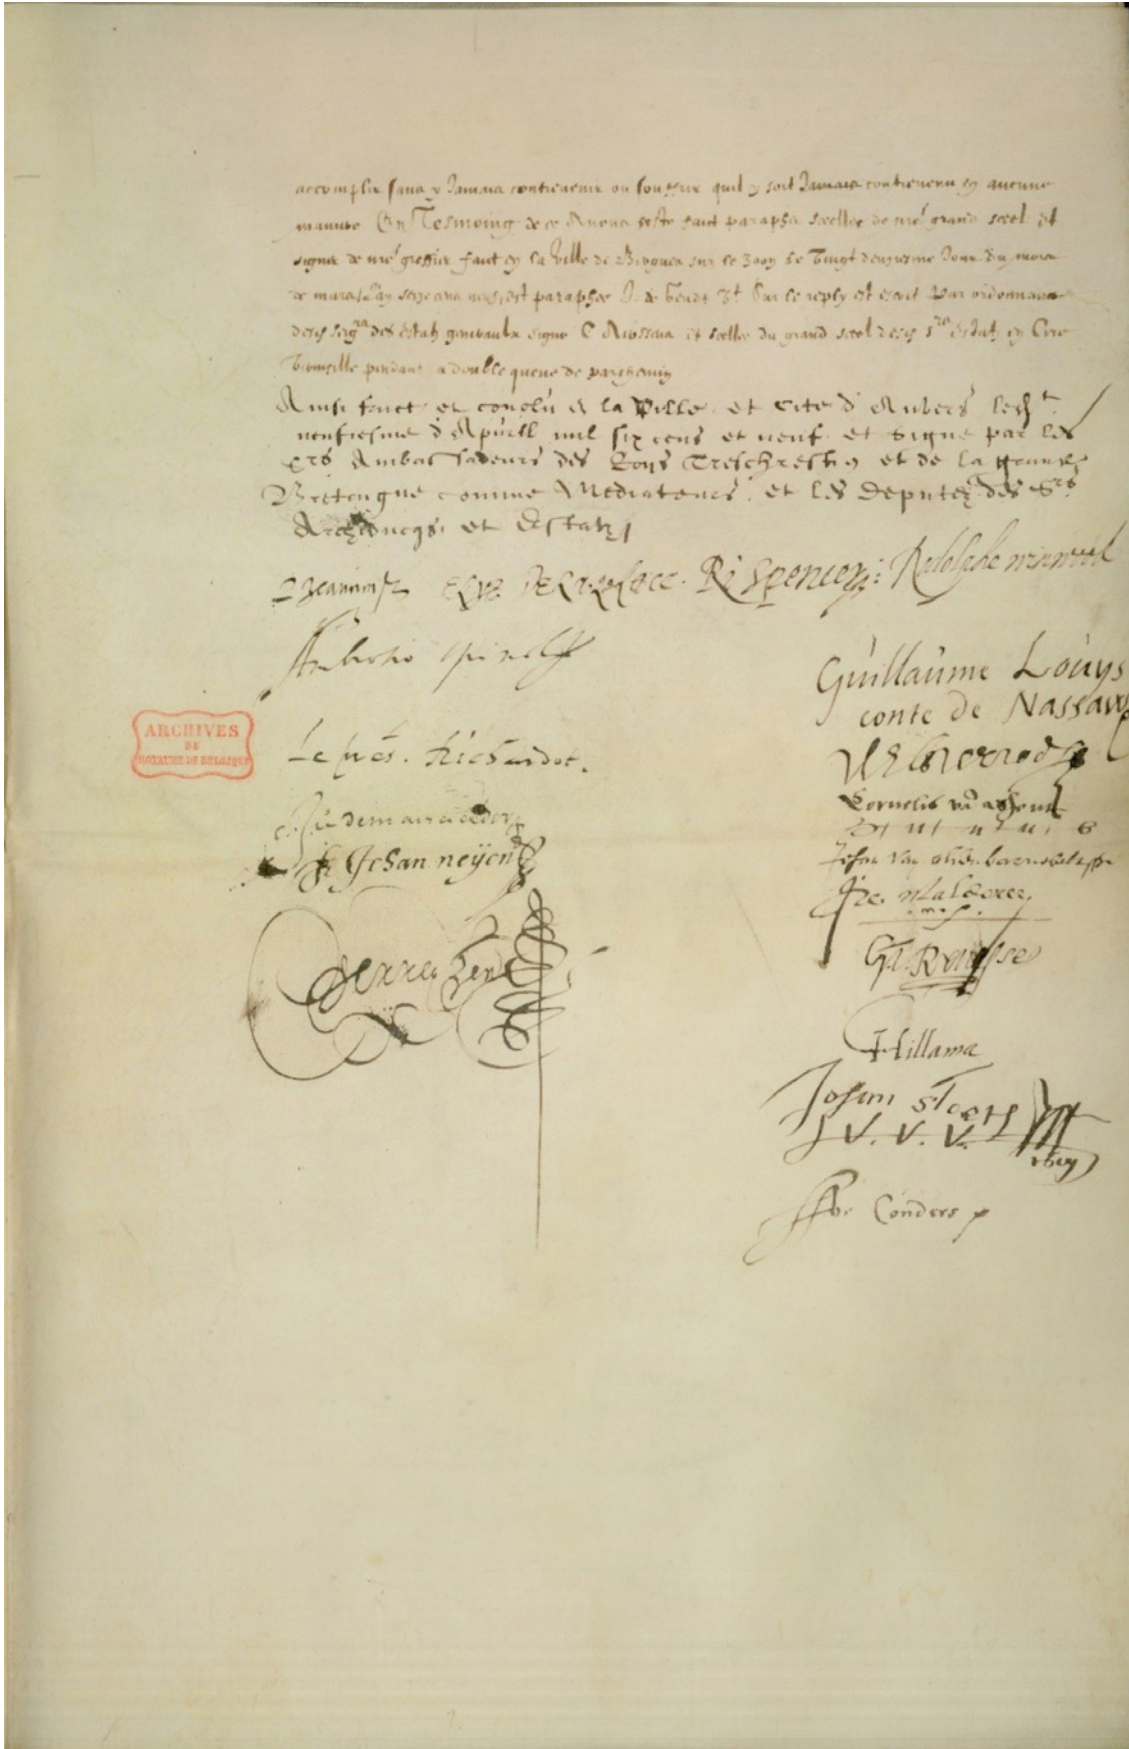 accomplir sans y Jamais contrevenir ou souffrir quil y soit Jamais contrevenu en aucune
maniere En Tesmoing de ce Avons ceste faict parapher sceller de nre grand seel et
signer de nre greffier faict en la ville de Bergues sur le Zoom le vingt deuxiesme Jour du mois
de mars l'an seize cens neuf est paraphe Sur le reply est escrit Par ordonnance
desd seigrs des Estatz generaulx signe C Aerssens et scelle du grand seel desd Srs Estatz en Cire
vermeille pendant a double queue de parchemin
Ainsi faict et conclu en la Ville et Cite d'Anvers led
neufiesme d'Apvril mil six cens et neuf et signe par les
Srs Ambassadeurs des Roys Treschrestien et de la grande
Bretaigne comme Mediateurs et les deputez des Srs
Archiducqs et Estatz
P Jeannin ELYE DE LA PLACE. Ri Spencer: Rodolphe winwood
Ambrosio Spinola
Guillaume Louys
conte de Nassau
ARCHIVES
DU
ROYAUME DE BELGIQUE
Le pres. Richardot.
W E brederode
Cornelis
Ju de mancicidor
Johan van olden barnevelt
Fr Johan neyen
Jac. Malderee
Verreyken
G. Renesse
Hillama
Johan Sloeth
Abe Conders